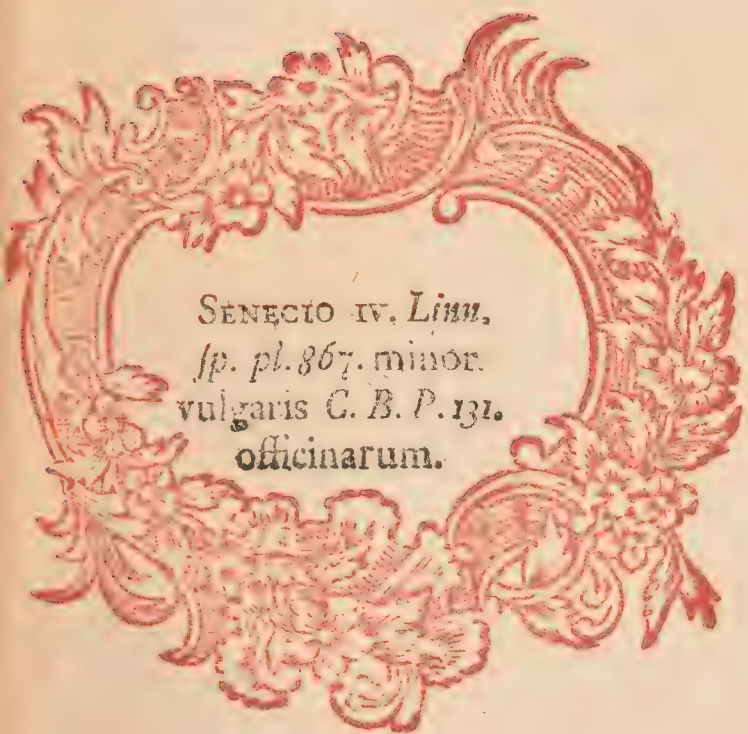 SENECIO IV. Linn.
sp. pl. 867. minor
vulgaris C. B. P. 131.
officinarum.